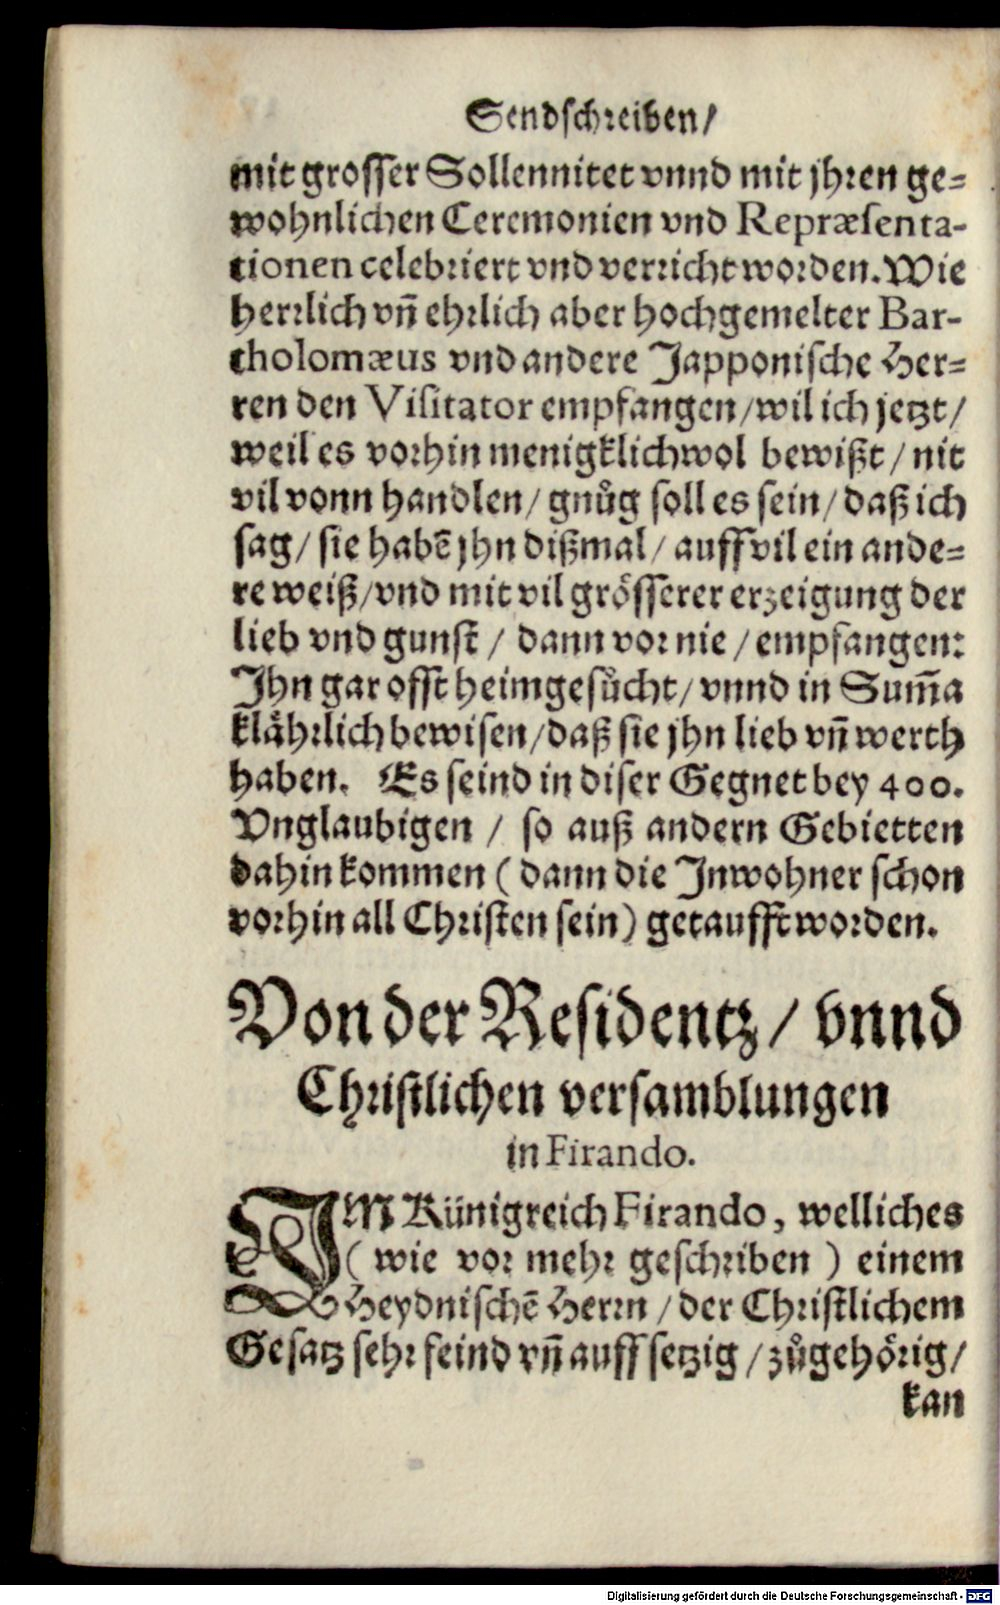 Sendschreiben/
mit grosser Sollennitet vnnd mit jhren ge-
wohnlichen Ceremonien vnd Repræsenta-
tionen celebriert vnd verricht worden. Wie
herrlich vñ ehrlich aber hochgemelter Bar-
tholomæus vnd andere Japponische Her-
ren den Visitator empfangen/wil ich jetzt/
weil es vorhin menigklich wol bewißt/ nit
vil vonn handlen/ gnůg soll es sein/ daß ich
sag/ sie habẽ jhn dißmal/ auff vil ein ande-
re weiß/vnd mit vil grösserer erzeigung der
lieb vnd gunst/ dann vor nie/empfangen:
Ihn gar offt heimgesůcht/ vnnd in Sum̃a
klährlich bewisen/daß sie jhn lieb vñ werth
haben. Es seind in diser Gegnet bey 400.
Vnglaubigen/ so auß andern Gebietten
dahin kommen (dann die Inwohner schon
vorhin all Christen sein) getaufft worden.
Von der Residentz/ vnnd
Christlichen versamblungen
in Firando.
IM Künigreich Firando, welliches
(wie vor mehr geschriben) einem
Heydnischẽ Herrn/der Christlichem
Gesatz sehr feind vñ auffsetzig/zůgehörig/
kan
Digitalisierung gefördert durch die Deutsche Forschungsgemeinschaft - DFG